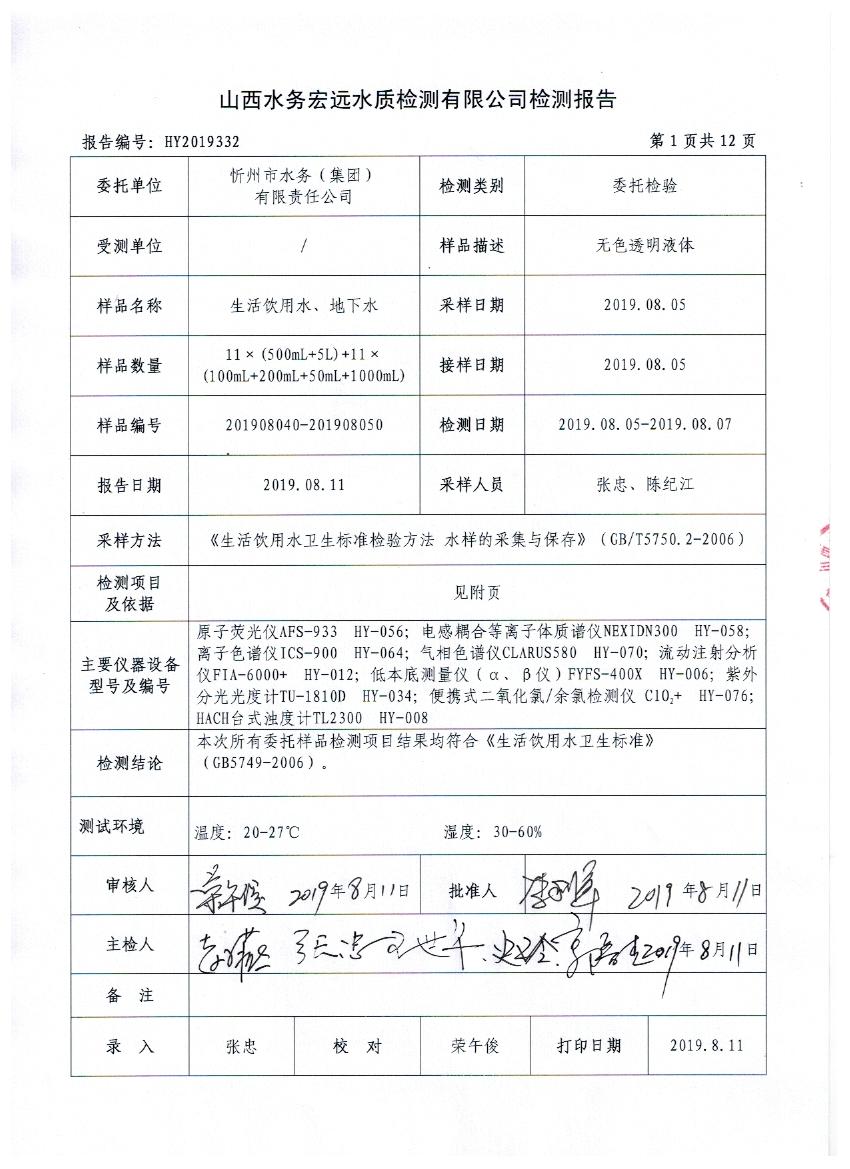 山西水务宏远水质检测有限公司检测报告
报告编号：HY2019332 第 1 页共 12 页
委托单位 忻州市水务（集团）有限责任公司 检测类别 委托检验
受测单位 / 样品描述 无色透明液体
样品名称 生活饮用水、地下水 采样日期 2019.08.05
样品数量 11×(500mL+5L)+11×(100mL+200mL+50mL+1000mL) 接样日期 2019.08.05
样品编号 201908040-201908050 检测日期 2019.08.05-2019.08.07
报告日期 2019.08.11 采样人员 张忠、陈纪江
采样方法 《生活饮用水卫生标准检验方法 水样的采集与保存》（GB/T5750.2-2006）
检测项目及依据 见附页
主要仪器设备型号及编号
原子荧光仪AFS-933 HY-056；电感耦合等离子体质谱仪NEXIDN300 HY-058；
离子色谱仪ICS-900 HY-064；气相色谱仪CLARUS580 HY-070；流动注射分析
仪FIA-6000+ HY-012；低本底测量仪（α、β仪）FYFS-400X HY-006；紫外
分光光度计TU-1810D HY-034；便携式二氧化氯/余氯检测仪 ClO₂+ HY-076；
HACH台式浊度计TL2300 HY-008
检测结论
本次所有委托样品检测项目结果均符合《生活饮用水卫生标准》
（GB5749-2006）。
测试环境 温度：20-27℃ 湿度：30-60%
审核人 荣午俊 2019年8月11日 批准人 2019年8月11日
主检人 张忠 2019年8月11日
备 注
录 入 张忠 校 对 荣午俊 打印日期 2019.8.11